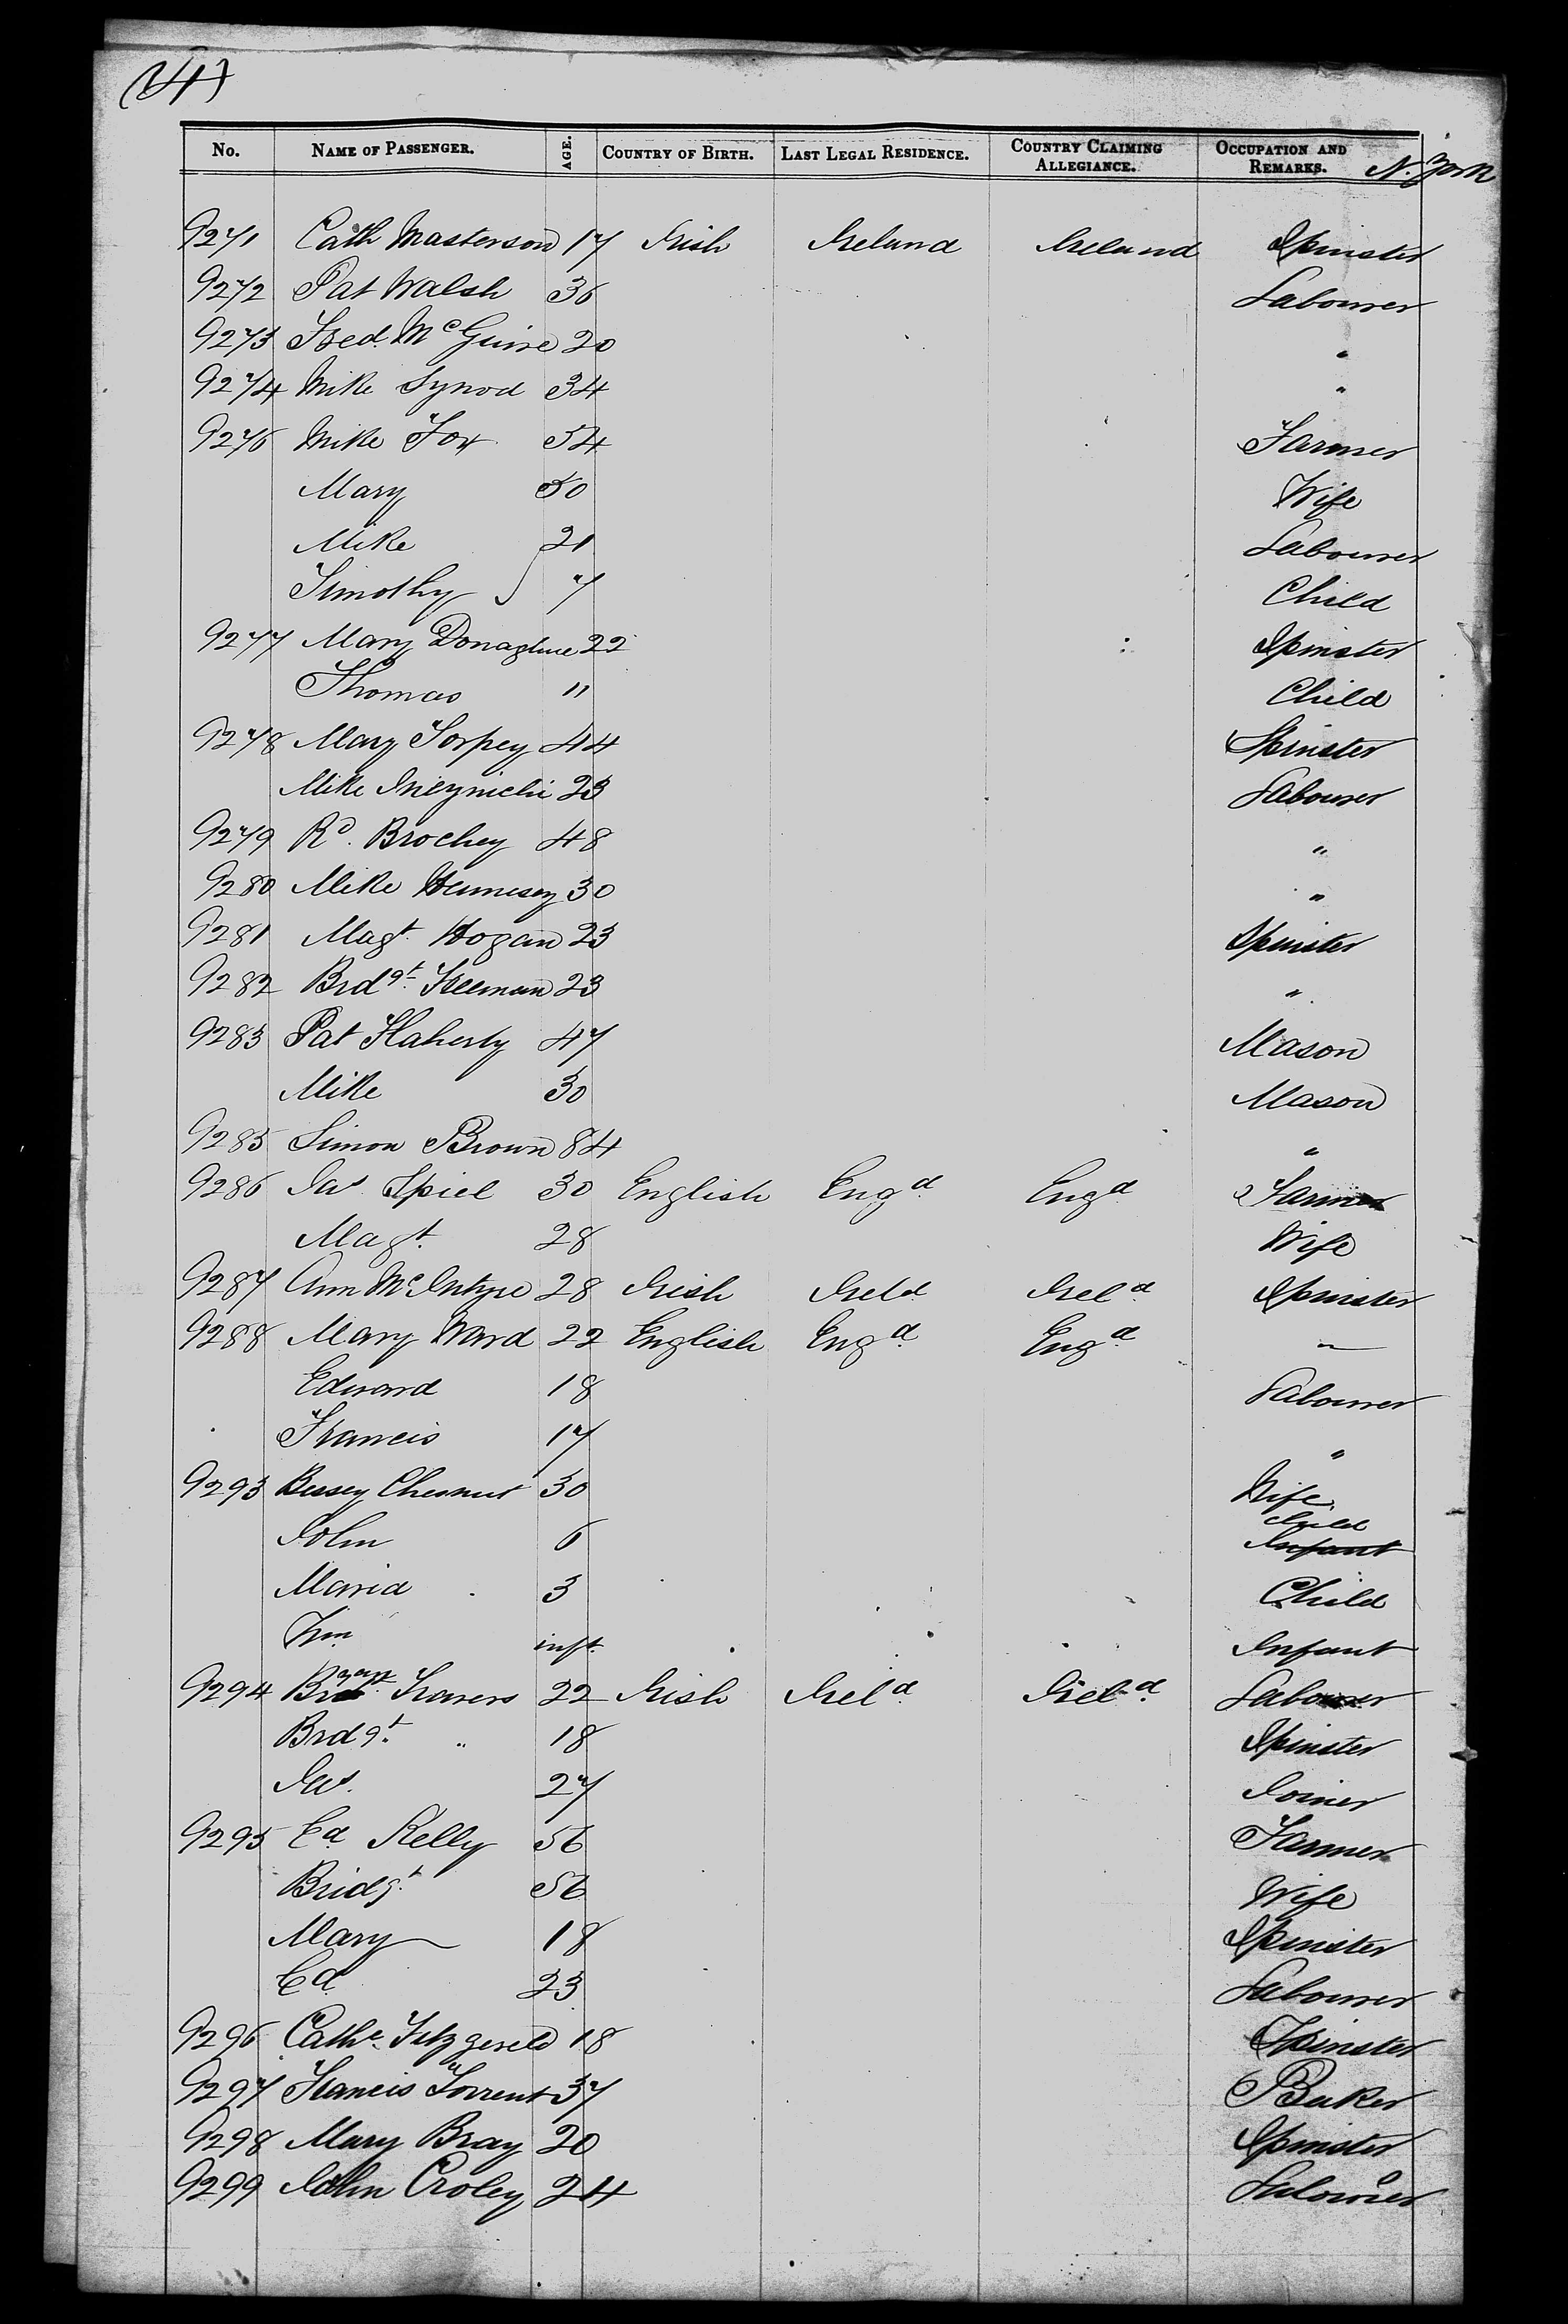 (4)
No. NAME OF PASSENGER. AGE. COUNTRY OF BIRTH. LAST LEGAL RESIDENCE. COUNTRY CLAIMING ALLEGIANCE. OCCUPATION AND REMARKS. N. York
9271 Cath Masterson 17 Irish Ireland Ireland Spinster
9272 Pat Walsh 36 Labourer
9273 Fred. McGuire 20 "
9274 Mike Synod 34 "
9276 Mike Fox 54 Farmer
Mary 50 Wife
Mike 21 Labourer
Timothy 7 Child
9277 Mary Donaghue 22 Spinster
Thomas 11 Child
9278 Mary Torpey 44 Spinster
Mike 23 Labourer
9279 Rd. Brochey 48 "
9280 Mike Hennesey 30 "
9281 Magt. Hogan 23 Spinster
9282 Brdgt. Freeman 23 "
9283 Pat Flaherty 47 Mason
Mike 30 Mason
9285 Simon Brown 84 "
9286 Jas Spiel 30 English Engd. Engd. Farmer
Magt. 28 Wife
9287 Ann McIntyre 28 Irish Ireld Ireld. Spinster
9288 Mary Ward 22 English Engd. Engd. "
Edward 18 Labourer
Francis 17 "
9293 Bessey Chesnut 30 Wife
John 6 Child Infant
Maria 3 Child
Wm inft. Infant
9294 Travers 22 Irish Ireld. Ireld. Labourer
Brdgt. " 18 Spinster
Jas. 27 Joiner
9295 Ed Kelly 56 Farmer
Bridgt. 56 Wife
Mary 18 Spinster
Ed 23 Labourer
9296 Cathe. Fitzgereld 18 Spinster
9297 Francis Torrent 37 Baker
9298 Mary Bray 20 Spinster
9299 John Croley 24 Labourer